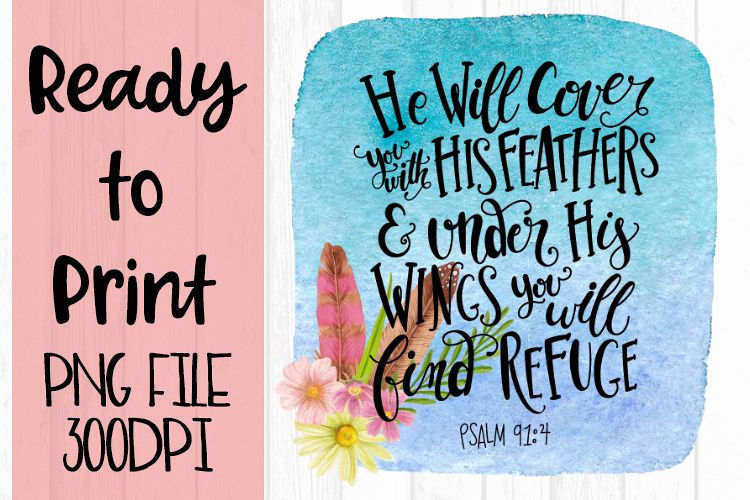 Ready
to
Print
PNG FILE
300DPI
He Will Cover
you with HIS FEATHERS
& under His
WINGS you will
find REFUGE
PSALM 91:4